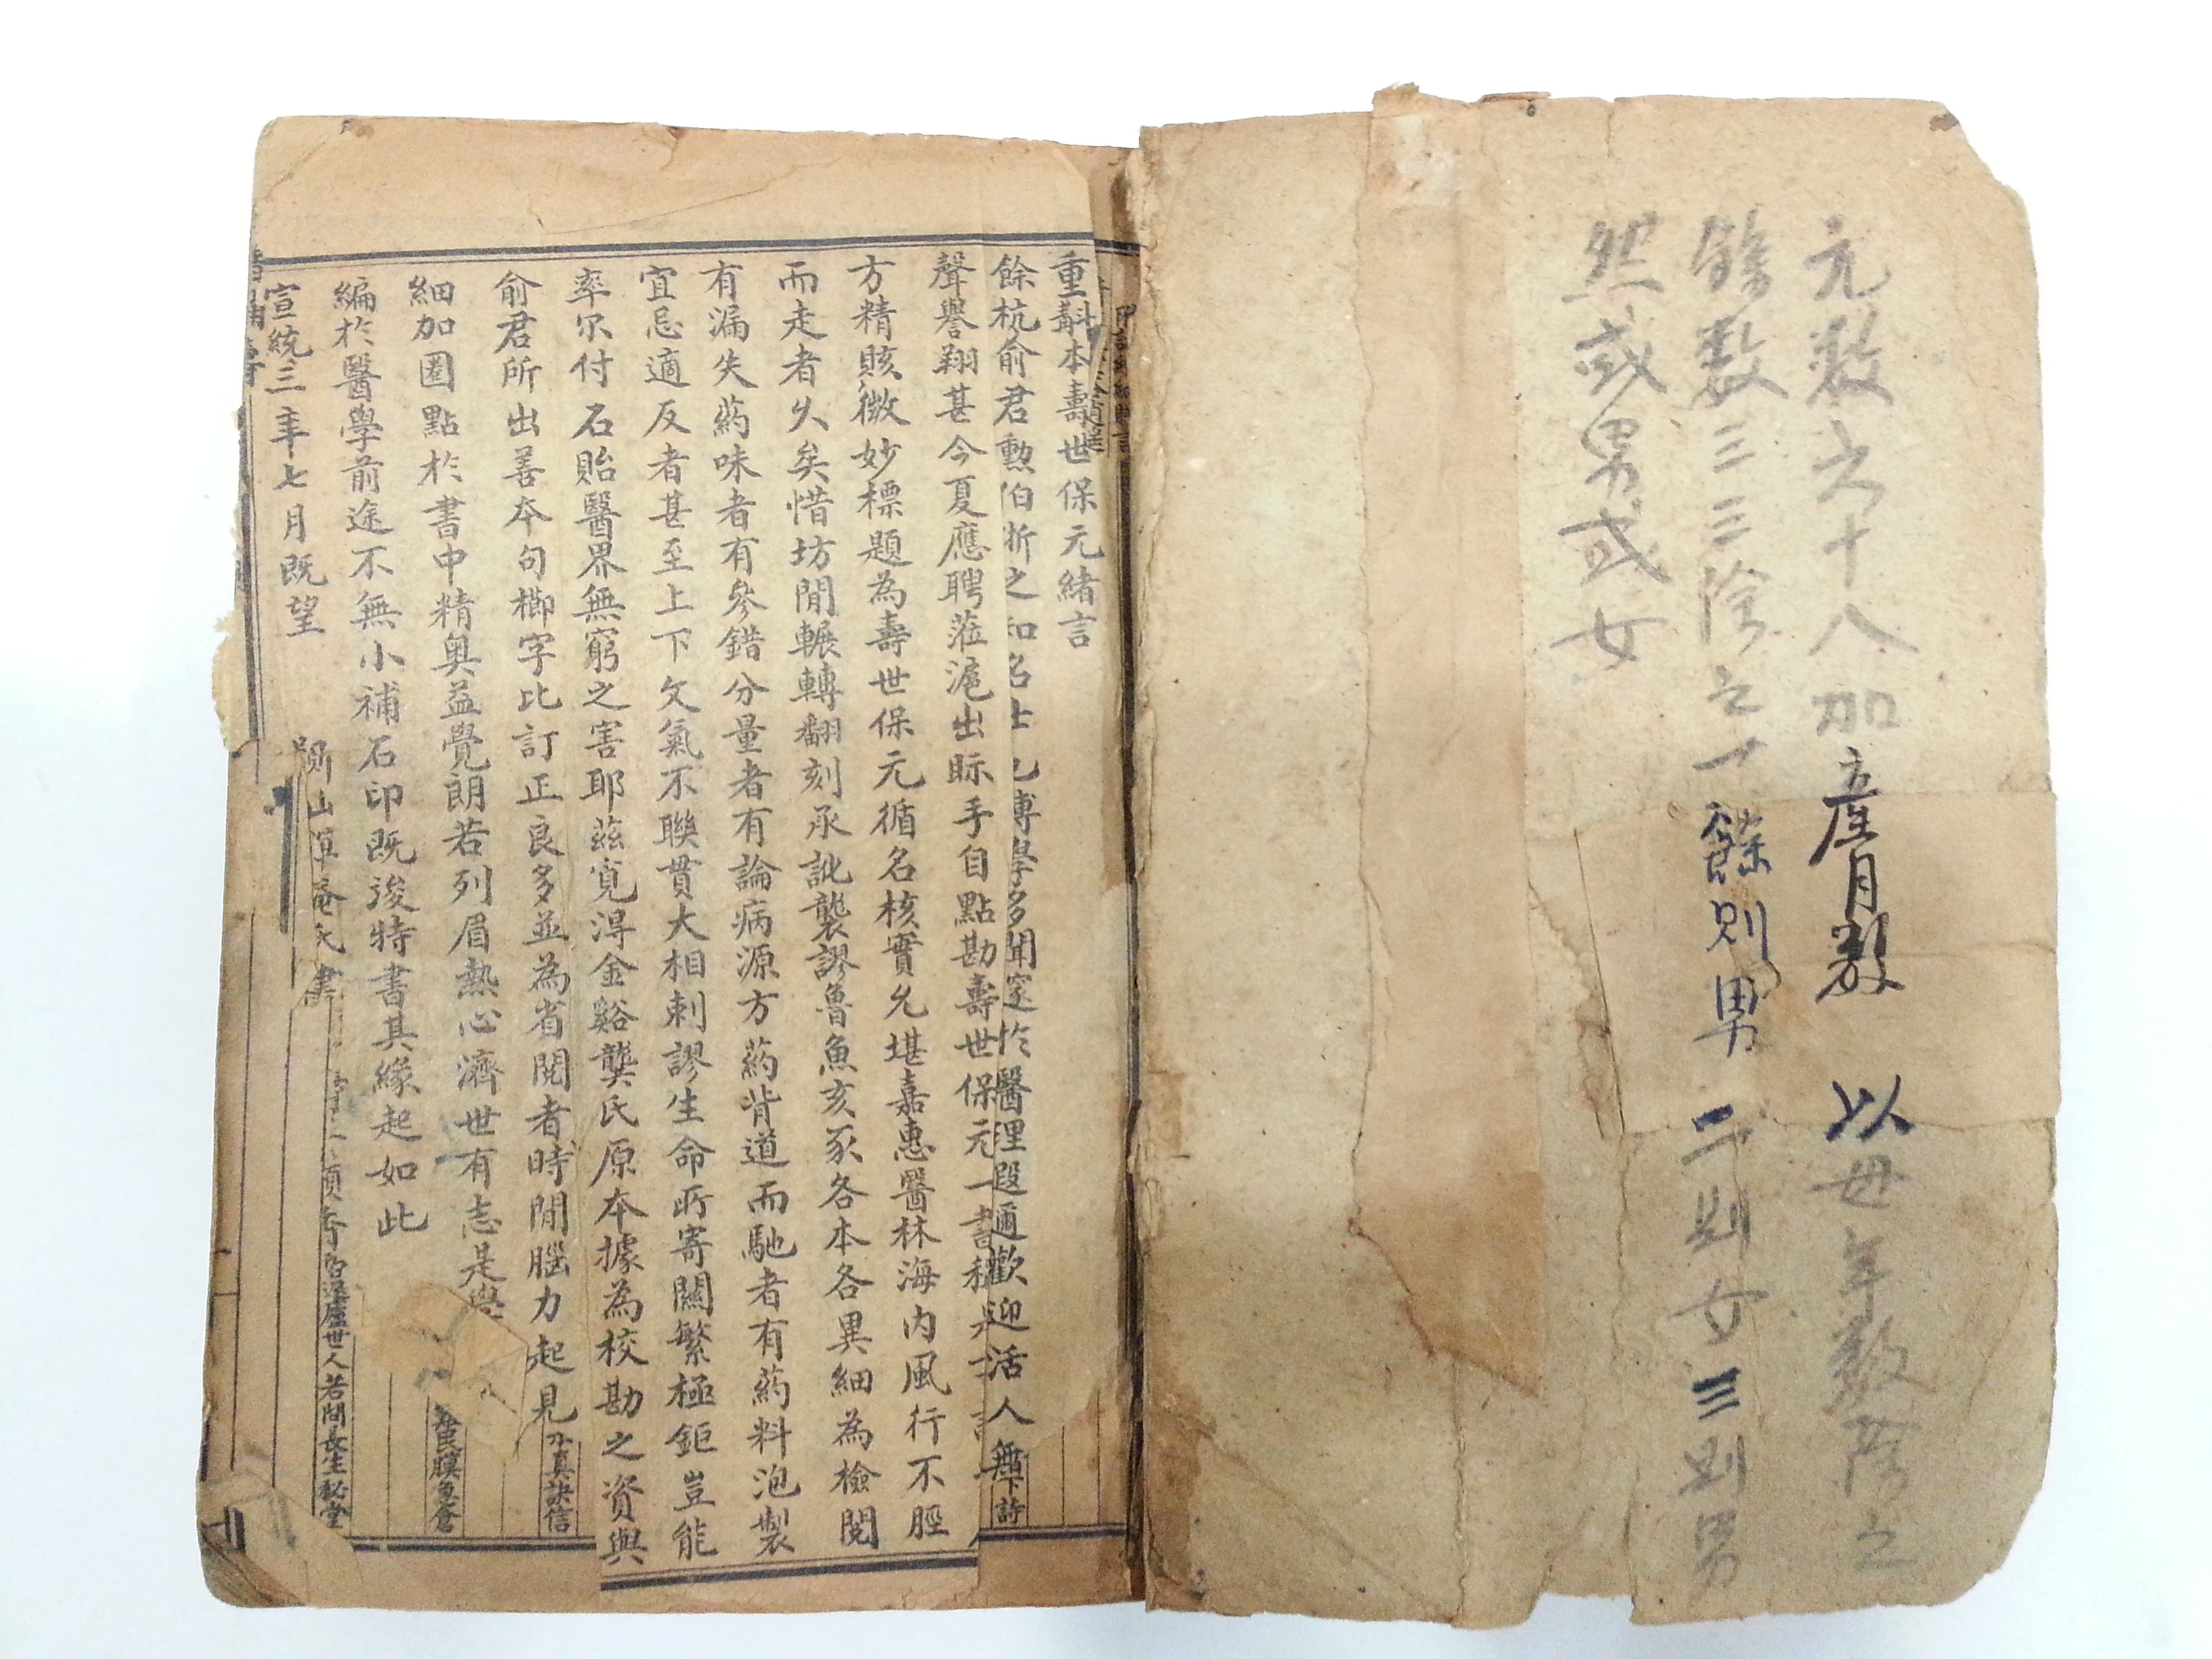 元数六十八加產月數 以母年数除之
餘数三三除之一餘則男 二則女三則男
然或男或女
重斠本壽世保元緒言
餘杭俞君勲伯浙之知名士也博學多聞邃於醫理遐邇歡迎活人無
聲譽翔甚今夏應聘蒞滬出眎手自點勘壽世保元一書
方精賅微妙標題為壽世保元循名核實允堪嘉惠醫林海內風行不脛
而走者久矣惜坊間輾轉翻刻承訛襲謬魯魚亥豕各本各異細為檢閱
有漏失葯味者有參錯分量者有論病源方葯背道而馳者有葯料泡製
宜忌適反者甚至上下文氣不聯貫大相剌謬生命所寄關繫極鉅豈能
率尔付石貽醫界無窮之害耶茲寬淂金谿龔氏原本據為校勘之資與
俞君所出善本句櫛字比訂正良多並為省閱者時間腦力起見
細加圈點於書中精奥益覺朗若列眉熱心濟世有志是學
編於醫學前途不無小補石印既竣特書其緣起如此
宣統三年七月既望
山 菴氏書
真訣信
膜盒
廬世人若問長生秘